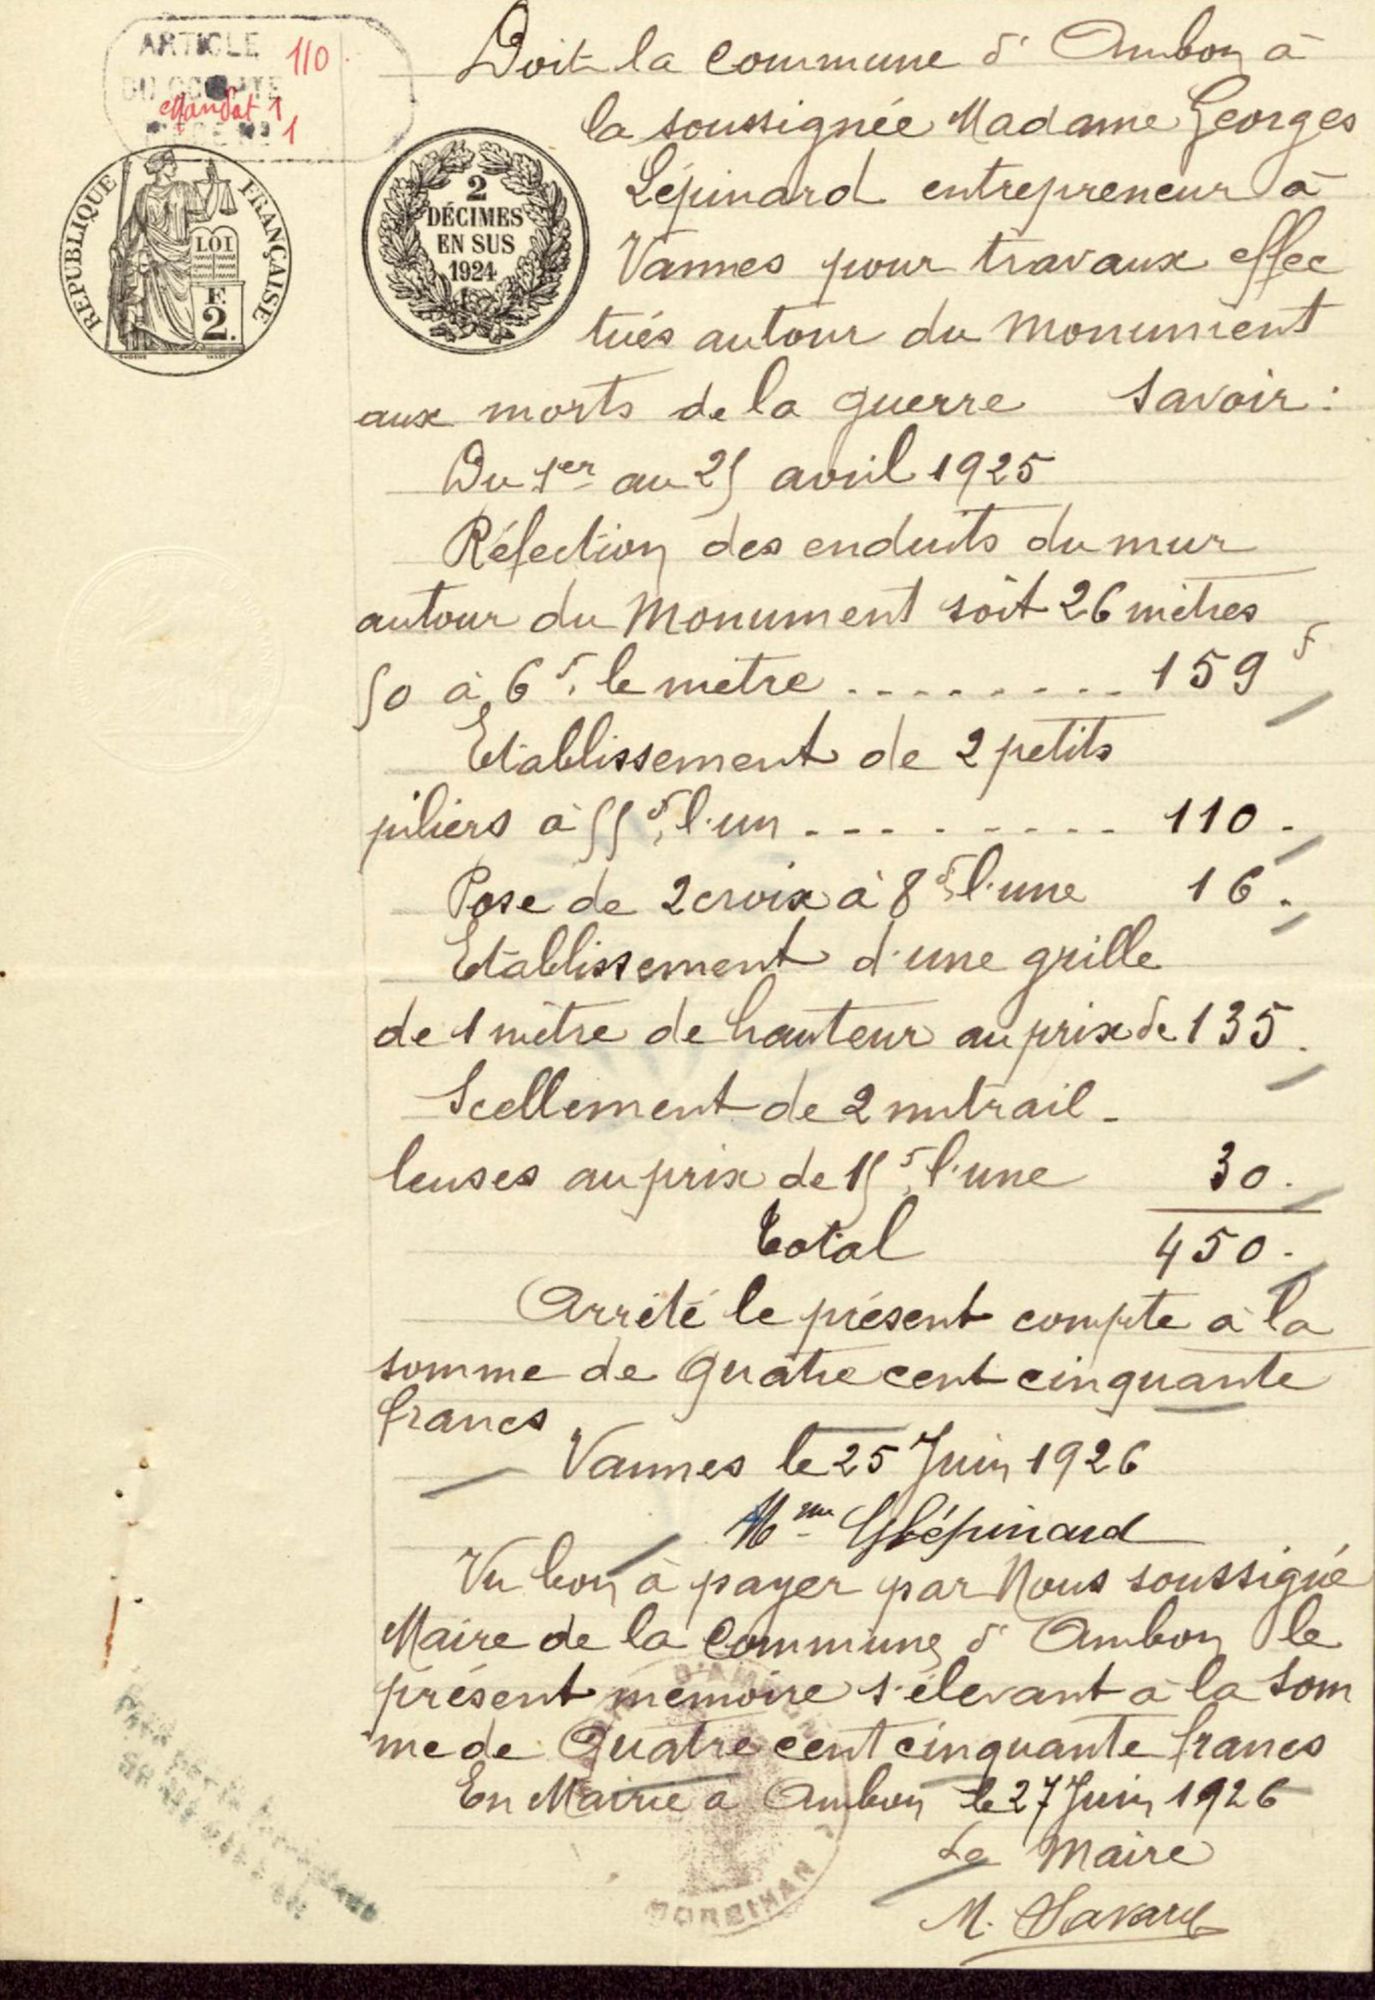 ARTICLE 110
DU COMPTE
Mandat 1
1
RÉPUBLIQUE FRANÇAISE
LOI
F
2.
2
DÉCIMES
EN SUS
1924
Doit la commune d'Ambon à
la soussignée Madame Georges
Lépinard entrepreneur à
Vannes pour travaux effec
tués autour du Monument
aux morts de la guerre savoir :
Du 1er au 25 avril 1925
Réfection des enduits du mur
autour du Monument soit 26 mètres
50 à 6f. le metre ......... 159f
Etablissement de 2 petits
piliers à 55f, l'un ......... 110.
Pose de 2 croix à 8f, l'une 16.
Etablissement d'une grille
de 1 mètre de hauteur au prix de 135.
Scellement de 2 mitrail-
leuses au prix de 15f, l'une 30.
Total 450.
Arrêté le présent compte à la
somme de Quatre cent cinquante
francs
Vannes le 25 Juin 1926
Mme G Lépinard
Vu bon à payer par Nous soussigné
Maire de la Commune d'Ambon le
présent mémoire s'élevant à la som
me de Quatre cent cinquante francs
En Mairie à Ambon le 27 Juin 1926
Le Maire
D'AMBON
MORBIHAN